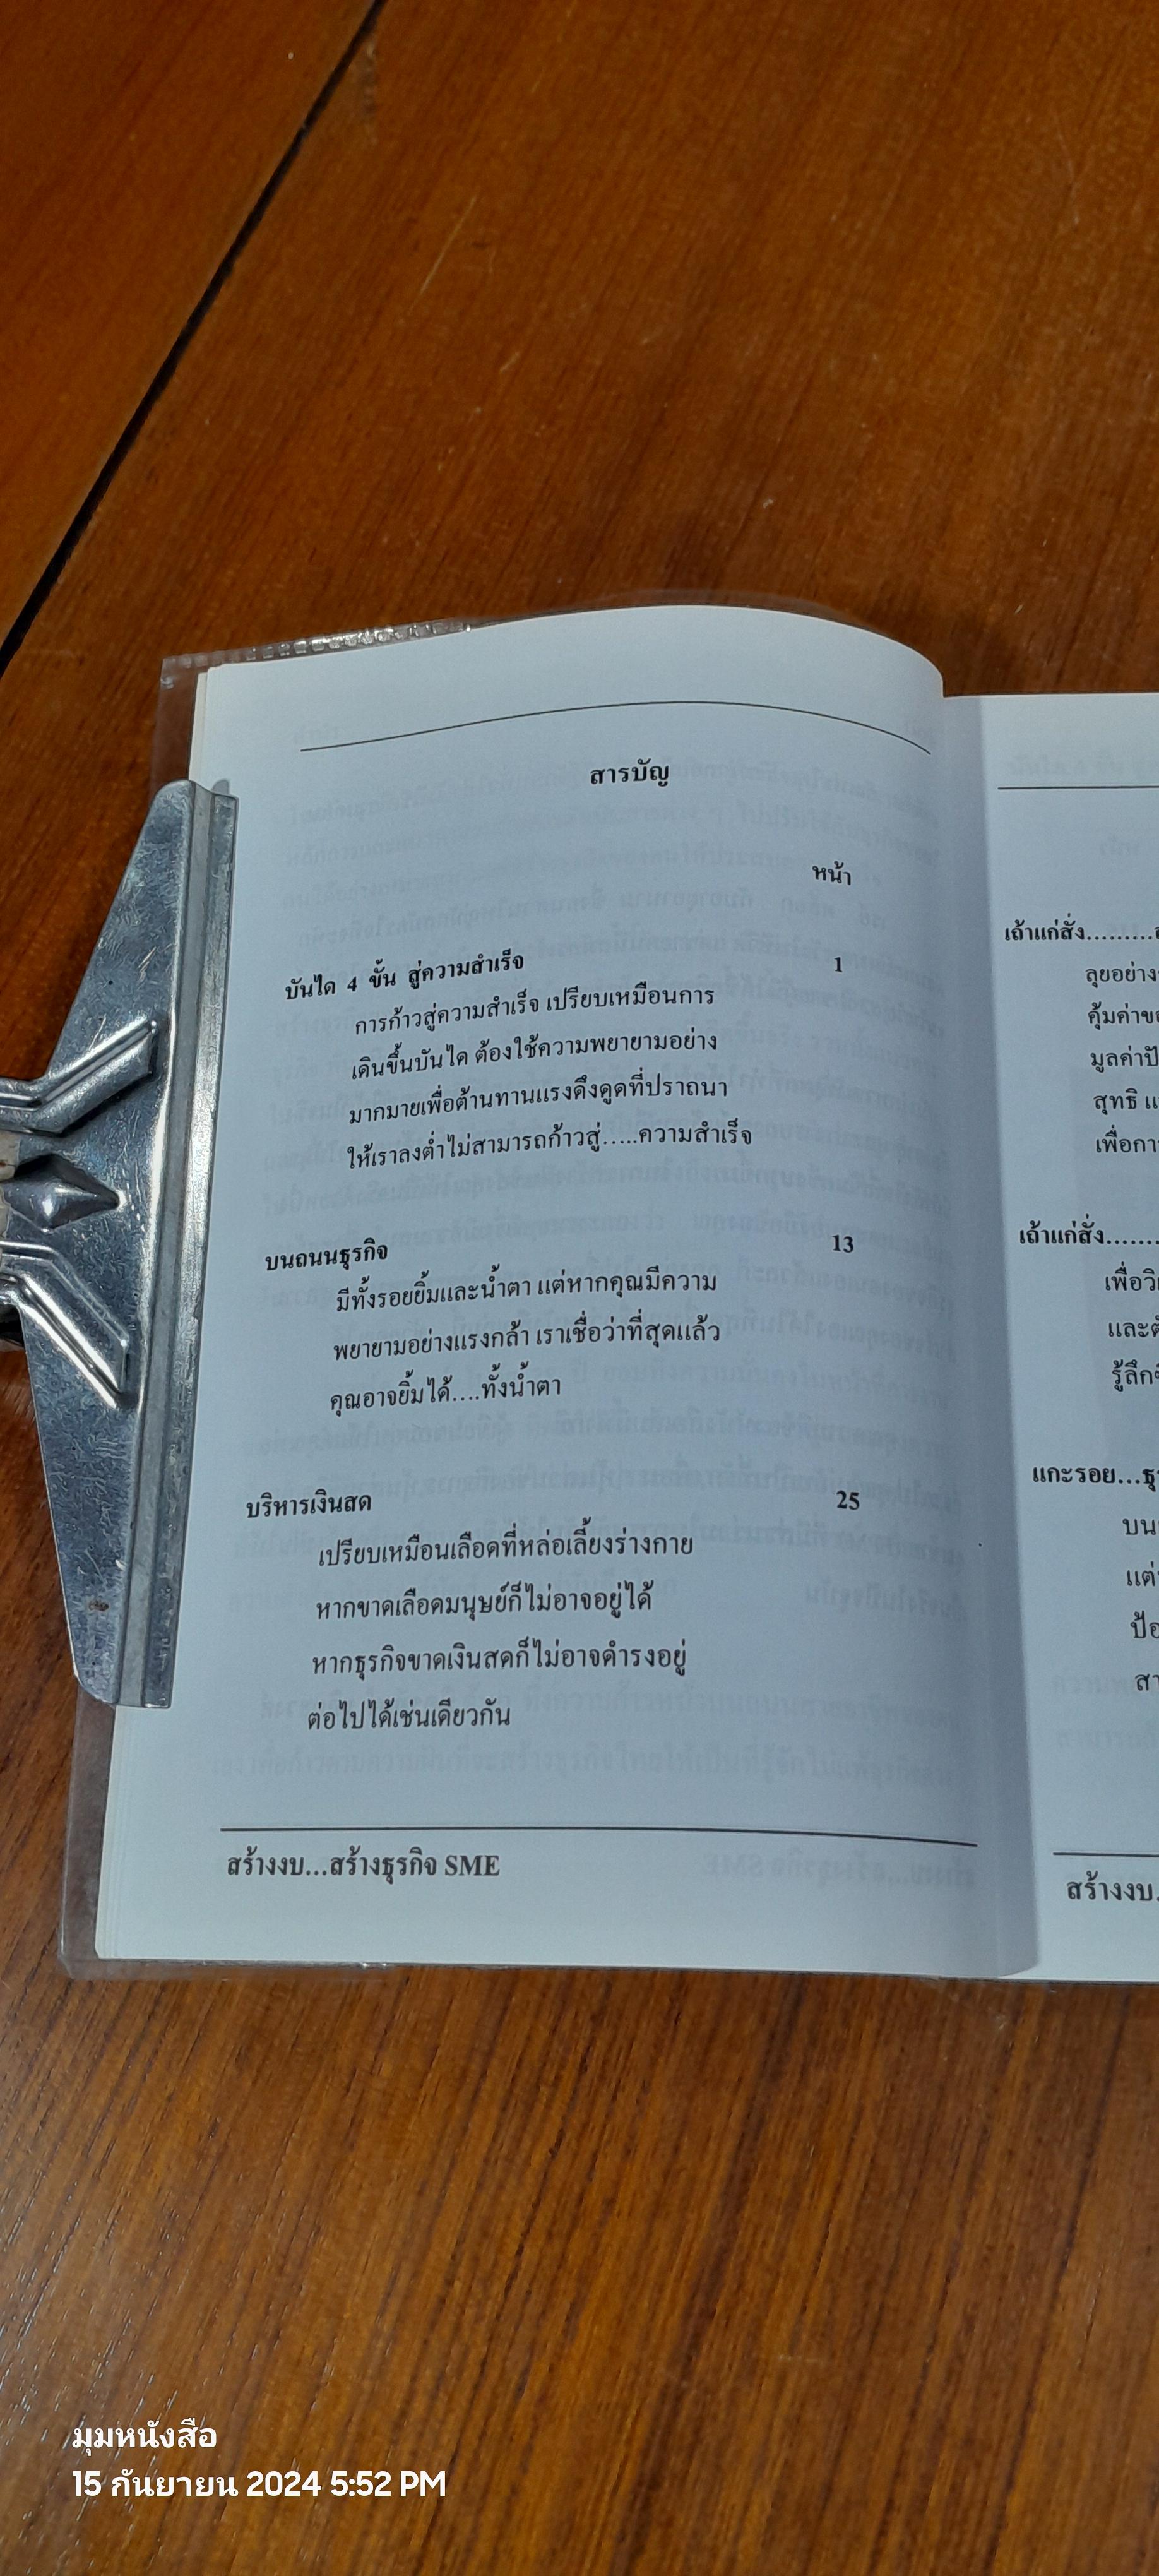 สารบัญ
หน้า
บันได 4 ขั้น สู่ความสำเร็จ 1
การก้าวสู่ความสำเร็จ เปรียบเหมือนการ
เดินขึ้นบันได ต้องใช้ความพยายามอย่าง
มากมายเพื่อต้านทานแรงดึงดูดที่ปราถนา
ให้เราลงต่ำไม่สามารถก้าวสู่.....ความสำเร็จ
บนถนนธุรกิจ 13
มีทั้งรอยยิ้มและน้ำตา แต่หากคุณมีความ
พยายามอย่างแรงกล้า เราเชื่อว่าที่สุดแล้ว
คุณอาจยิ้มได้....ทั้งน้ำตา
บริหารเงินสด 25
เปรียบเหมือนเลือดที่หล่อเลี้ยงร่างกาย
หากขาดเลือดมนุษย์ก็ไม่อาจอยู่ได้
หากธุรกิจขาดเงินสดก็ไม่อาจดำรงอยู่
ต่อไปได้เช่นเดียวกัน
สร้างงบ...สร้างธุรกิจ SME
เถ้าแก่สั่ง.........
ลุยอย่าง
คุ้มค่า
มูลค่า
สุทธิ
เพื่อ
เถ้าแก่สั่ง.......
เพื่อ
และ
รู้ลึก
แกะรอย...
บน
สร้างงบ.
มุมหนังสือ
15 กันยายน 2024 5:52 PM